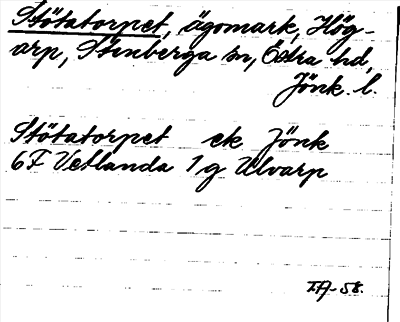 Stötatorpet, ägomark, Hög-
arp, Stenberga sn, Östra hd,
Jönk. l.
Stötatorpet ek Jönk
6F Vetlanda 1g Ulvarp
I.A-58.